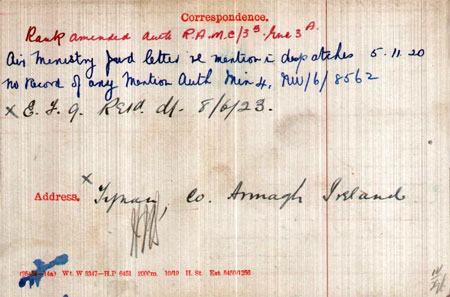 Correspondence.
Rank amended auth R.A.M.C/3
Air Ministry fwd letter re mention i despatches 5.11.20
No record of any Mention Auth Min 4, NW/6/8562
x E. F. 9. Retd. df. 8/6/23.
Address. x Tynan, Co. Armagh Ireland
Wt. W 5347—H.P 6451 2000m. 10/19 H. St. Est 5400/1256